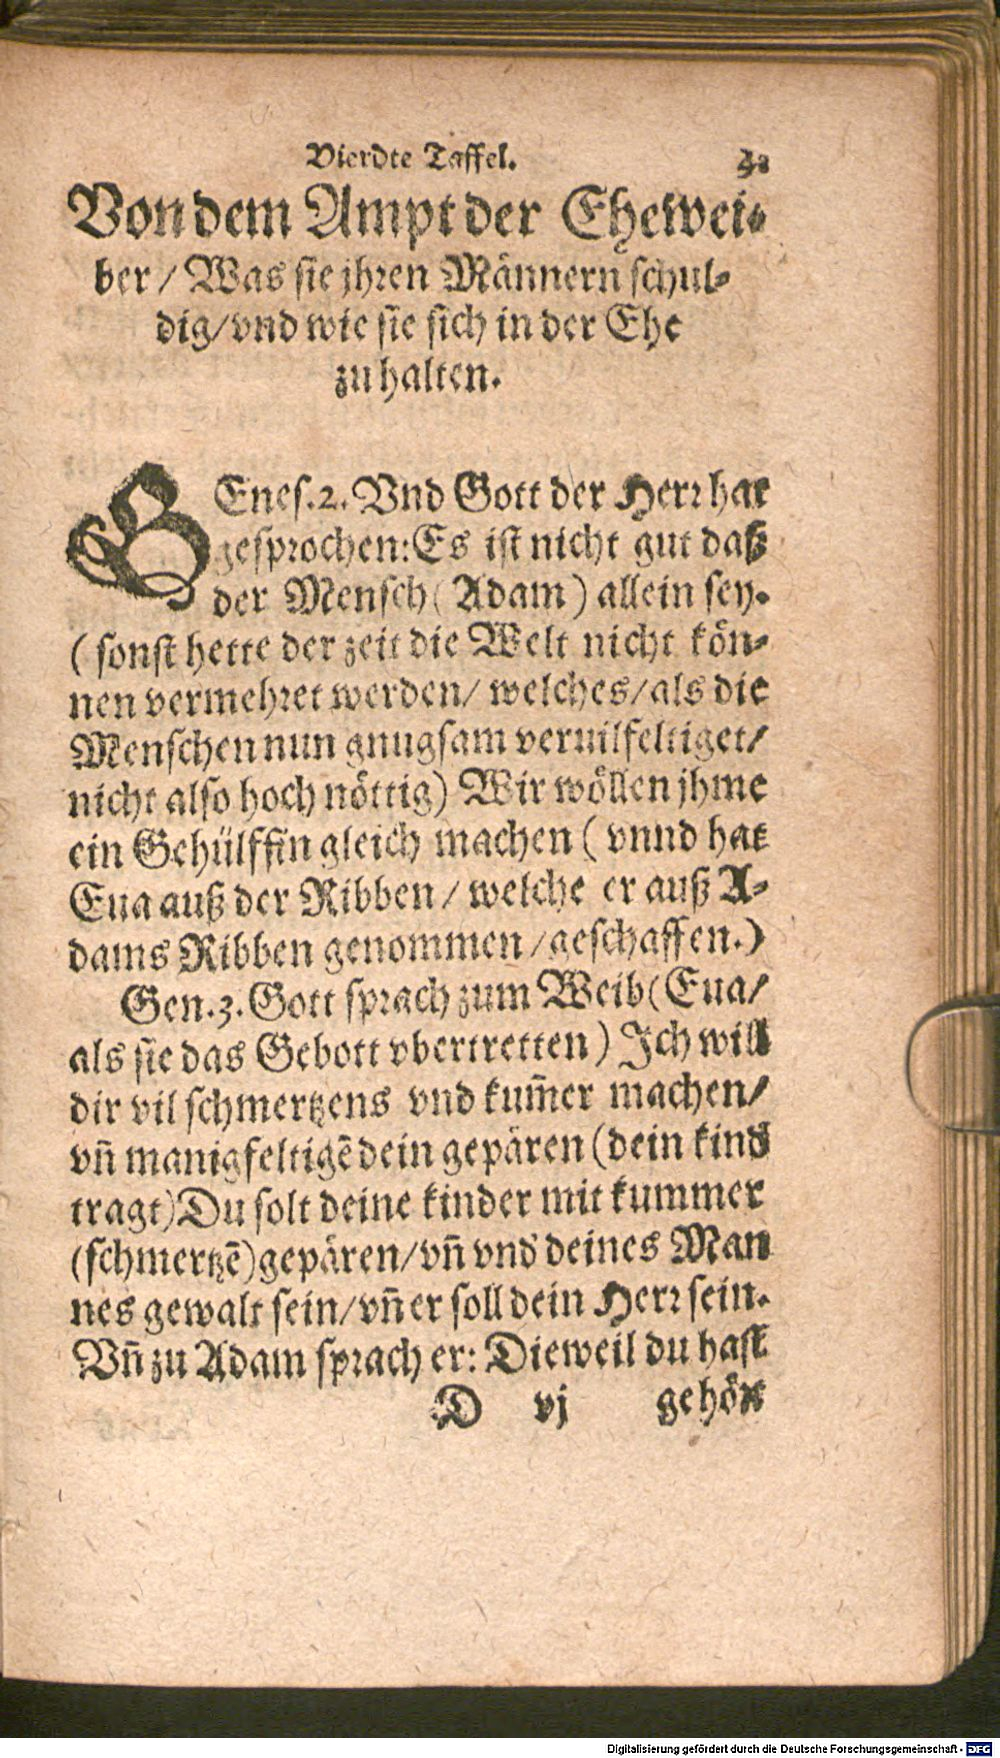 Vierdte Taffel.
Von dem Ampt der Ehewei-
ber / Was sie jhren Männern schul-
dig/vnd wie sie sich in der Ehe
zu halten.
GEnes.2. Vnd Gott der Herr hat
gesprochen: Es ist nicht gut daß
der Mensch ( Adam ) allein sey.
( sonst hette der zeit die Welt nicht kön-
nen vermehret werden/ welches/als die
Menschen nun gnugsam veruilfeltiget/
nicht also hoch nöttig) Wir wöllen jhme
ein Gehülffin gleich machen ( vnnd hat
Eua auß der Ribben / welche er auß A-
dams Ribben genommen /geschaffen.)
Gen.3. Gott sprach zum Weib (Eua/
als sie das Gebott vbertretten ) Ich will
dir vil schmertzens vnd kum̄er machen/
vn̄ manigfeltigē dein gepären (dein kind
tragt) Du solt deine kinder mit kummer
(schmertzē) gepären/vn̄ vnd deines Man
nes gewalt sein/vn̄ er soll dein Herr sein.
Vn̄ zu Adam sprach er: Dieweil du hast
D vj gehört
Digitalisierung gefördert durch die Deutsche Forschungsgemeinschaft - DFG